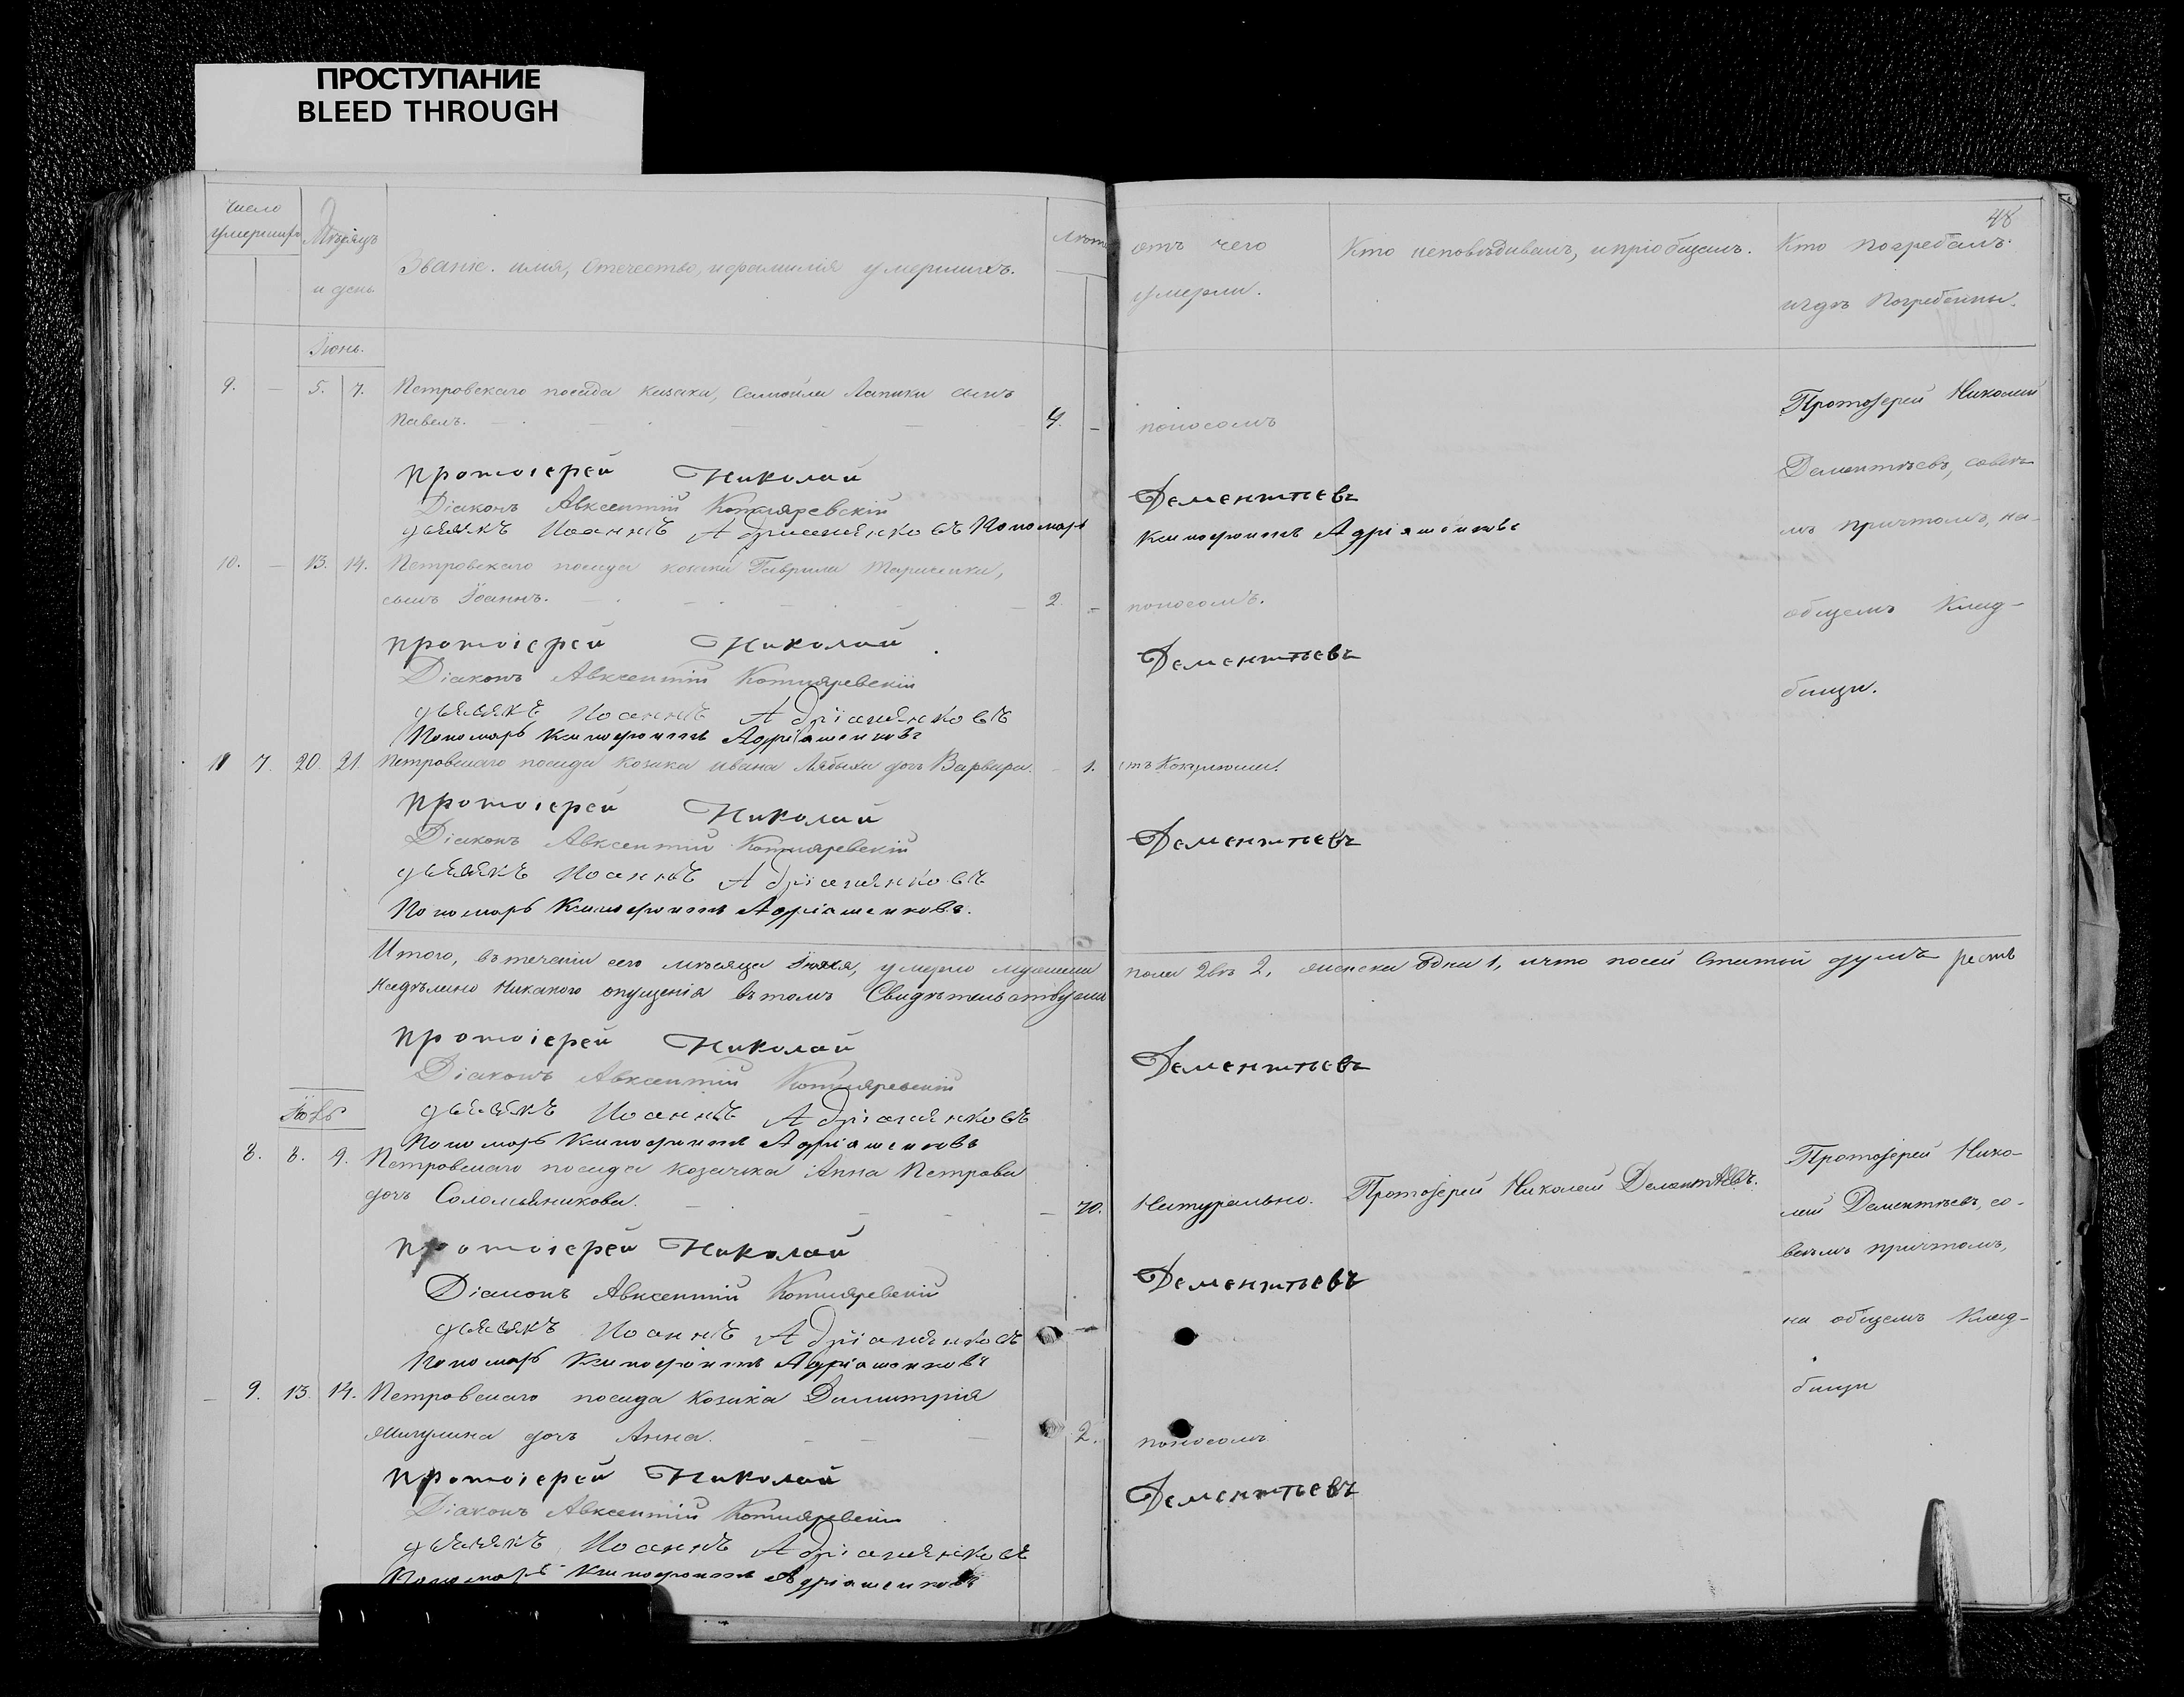 ПРОСТУПАНИЕ
BLEED THROUGH
48
Число умершихъ
Мѣсяцъ и день
Званіе. имя, Отечество, и фамилія умершихъ.
Лѣта
отъ чего умерли.
Кто исповѣдывалъ, и пріобщалъ.
Кто погребалъ и гдѣ Погребенны.
Іюнь.
9. — 5. 7. Петровскаго посада казака, Самойла Лапики сынъ
Павелъ. 4. — поносомъ
Протоіерей Николай
Дементьевъ, со всѣ-
мъ причтомъ, на
общемъ Клад-
бищи.
протоіерей Николай Дементьевъ
Діаконъ Авксентій Котляревскій
дьячекъ Иоаннъ Адріященковъ Пономарь Ксенофонтъ Адріяшенковъ
10. — 13. 14. Петровскаго посада козака Гаврила Тарасенка,
сынъ Іоаннъ. 2. — поносомъ.
протоіерей Николай Дементьевъ
Діаконъ Авксентій Котляревскій
дьячекъ Иоаннъ Адріященковъ
Пономарь Ксенофонтъ Адріяшенковъ
11 7. 20. 21. Петровскаго посада козака Ивана Лябыхи дочь Варвара. — 1. отъ Коклюша.
протоіерей Николай Дементьевъ
Діаконъ Авксентій Котляревскій
дьячекъ Иоаннъ Адріященковъ
Пономарь Ксенофонтъ Адріяшенковъ.
Итого, въ теченіи сего мѣсяца Іюня, умерло мужеска пола двѣ 2, женска Одна 1, и что по сей Статьи
Никакого опущенія въ томъ Свидѣтельствуемъ
протоіерей Николай Дементьевъ
Діаконъ Авксентій Котляревскій
дьячекъ Иоаннъ Адріященковъ
Пономарь Ксенофонтъ Адріяшенковъ
Іюль
8. 8. 9. Петровскаго посада козачка Анна Петрова
дочь Соломьяникова. — 70. Натурально. Протоіерей Николай Дементьевъ.
Протоіерей Нико-
лай Дементьевъ, со
всѣмъ причтомъ,
на общемъ Клад-
бищи
протоіерей Николай Дементьевъ
Діаконъ Авксентій Котляревскій
дьячекъ Иоаннъ Адріященковъ
Пономарь Ксенофонтъ Адріяшенковъ
— 9. 13. 14. Петровскаго посада козака Димитрія
Мигулина дочь Анна. 2. поносомъ
протоіерей Николай Дементьевъ
Діаконъ Авксентій Котляревскій
дьячекъ Иоаннъ Адріященковъ
Пономарь Ксенофонтъ Адріяшенковъ